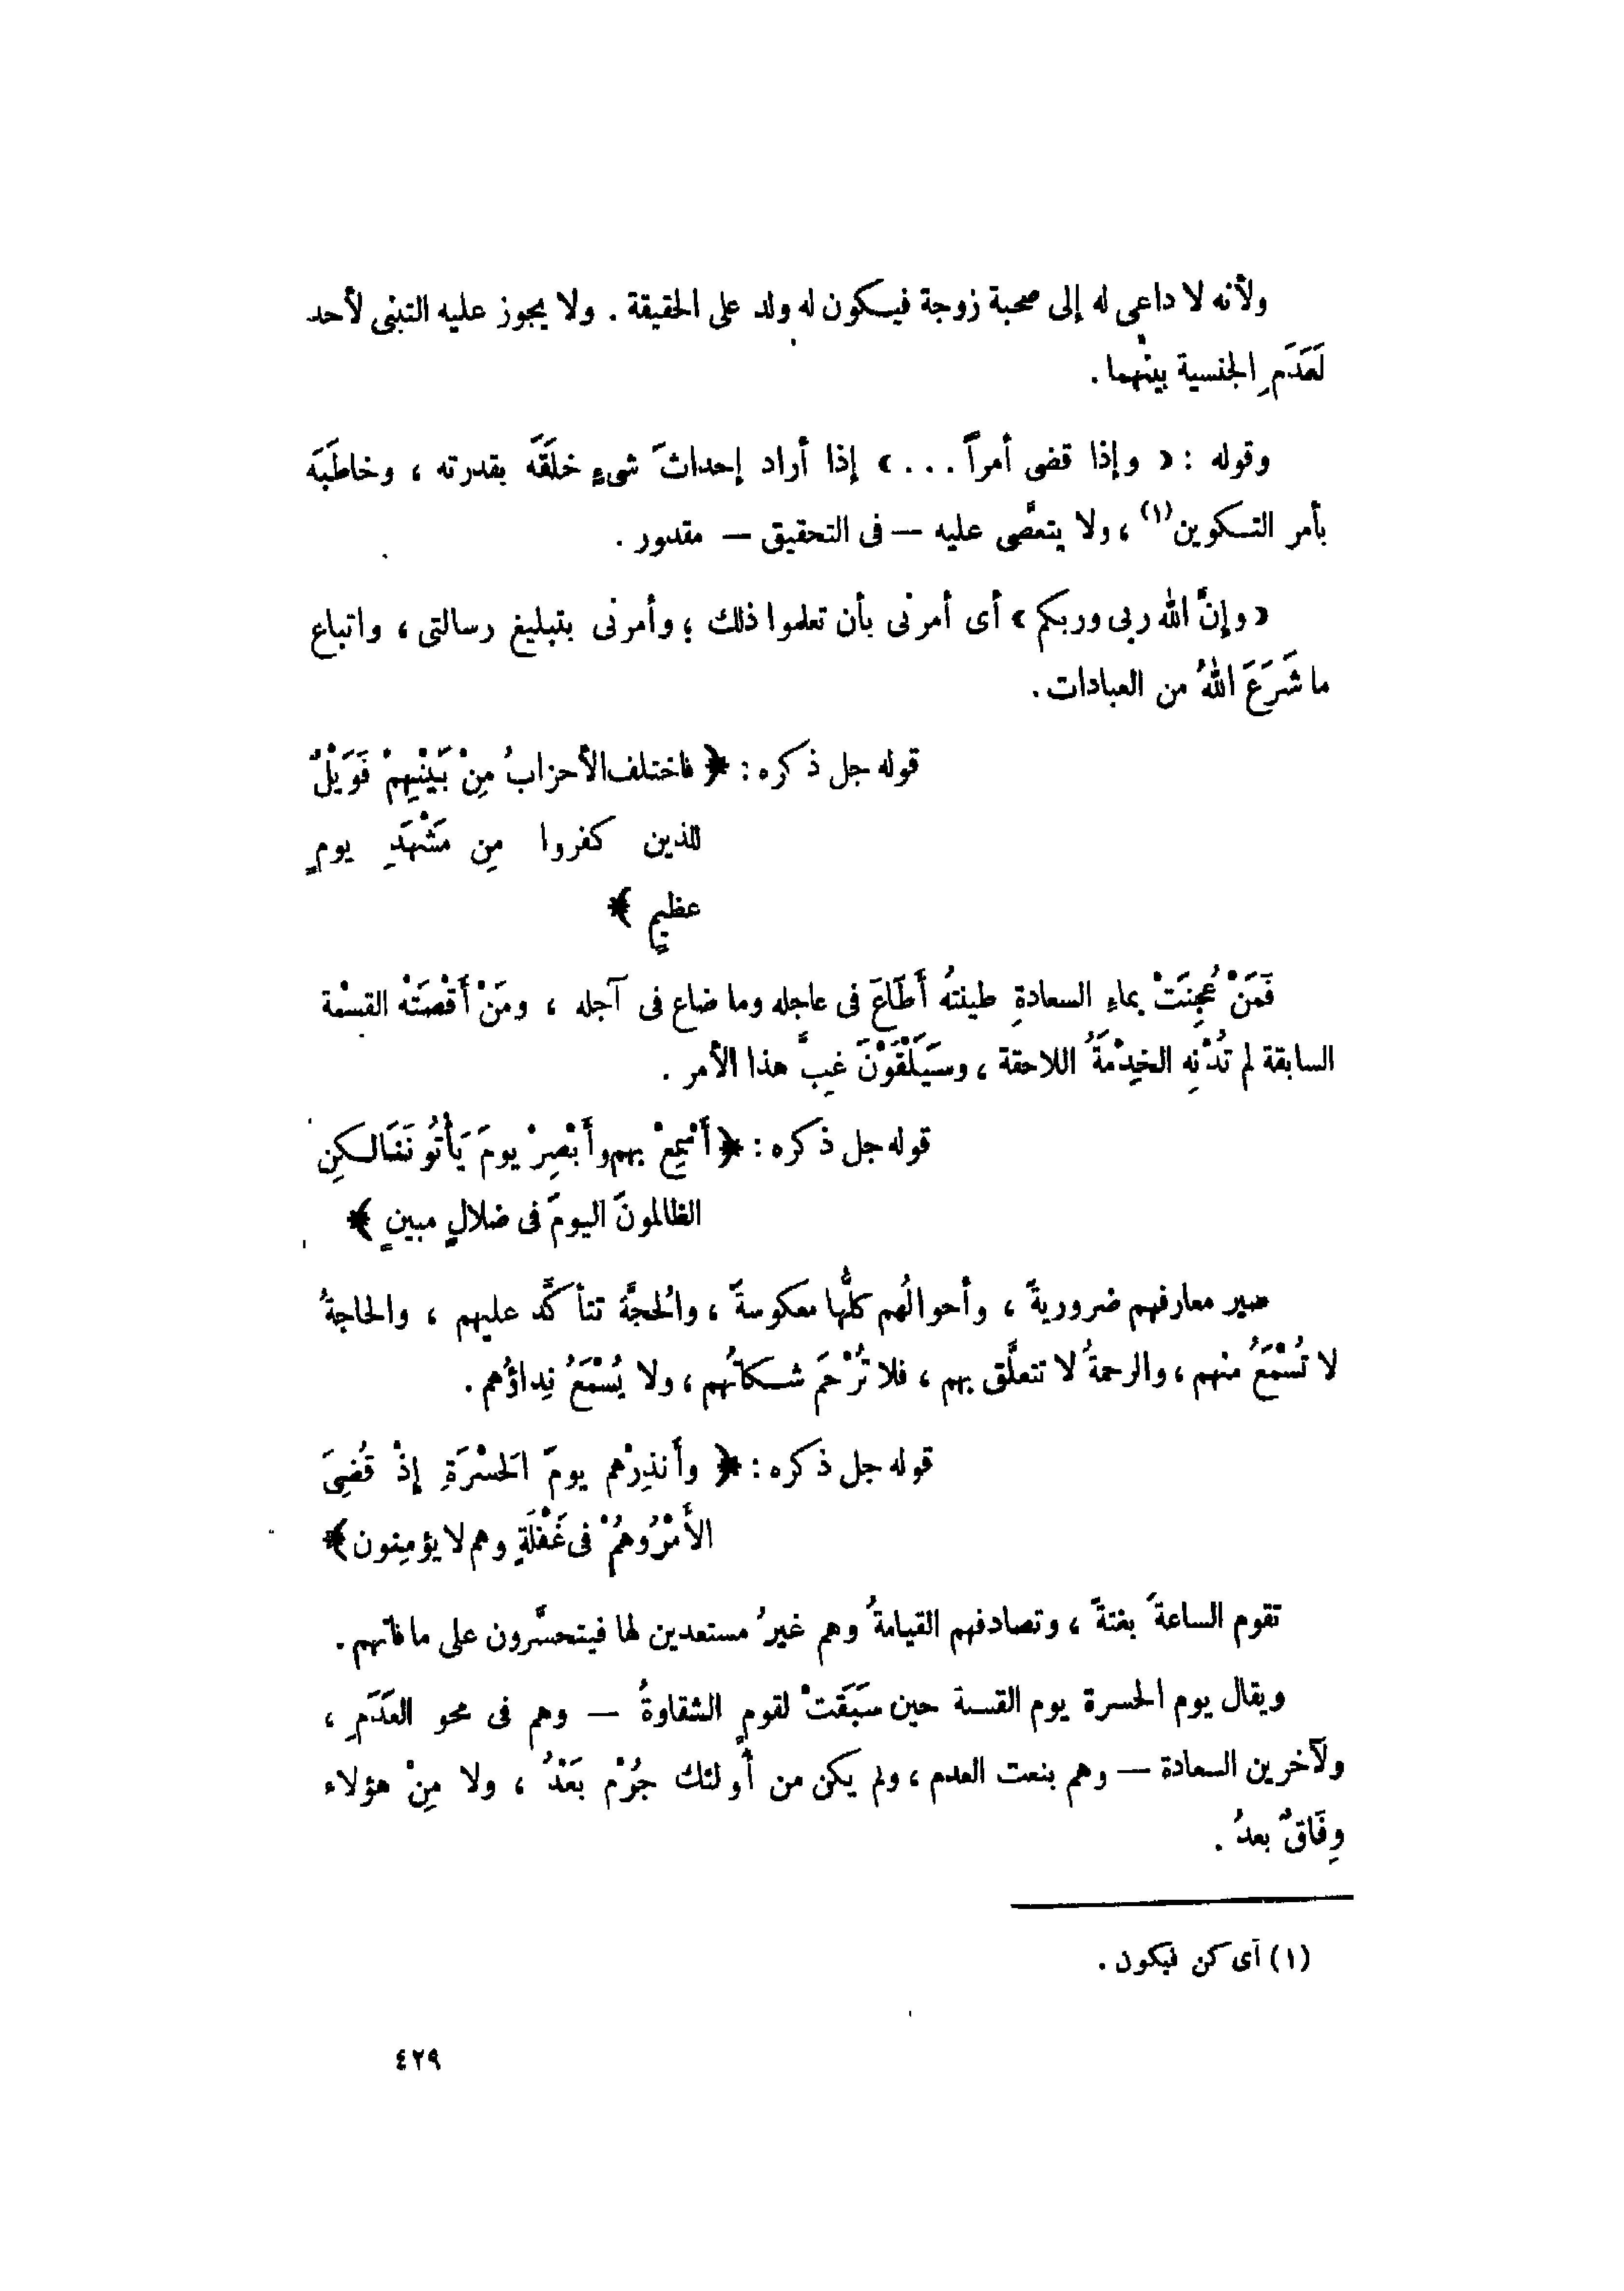 ولأنه لا داعى له إلى صحبة زوجة فيكون له ولد على الحقيقة . ولا يجوز عليه التبنى لأحد
لَعَدَمِ الجنسية بينْهما .
وقوله : « وإذا قضى أمراً . . . » إذا أراد إحداثَ شىءٍ خلَقَه بقدرته ، وخاطَبَه
بأمر التكوين(١) ، ولا يتعصَّى عليه — فى التحقيق — مقدور .
« وإنَّ الله ربى وربكم » أى أمرنى بأن تعلموا ذلك ؛ وأمرنى بتبليغ رسالتى ، واتباع
ما شَرَعَ اللهُ من العبادات .
قوله جل ذكره : ﴿ فاختلف الأحزابُ مِنْ بَيْنِهِمْ فَوَيْلٌ
للذين كفروا مِن مَشْهَدِ يومٍ
عظيمٍ ﴾
فَمَنْ عُجِنَتْ بماءِ السعادةِ طينتهُ أَطَاعَ فى عاجله وما ضاع فى آجله ، ومَنْ أَقْصَتْه القسْمة
السابقة لم تُدْنِه الخِدْمَةُ اللاحقة ، وسَيَلْقَوْنَ غِبَّ هذا الأمر .
قوله جل ذكره : ﴿ أَسْمِعْ بهم وأَبْصِرْ يومَ يَأْتُونَنَا لكنِ
الظالمونَ اليومَ فى ضلالٍ مبينٍ ﴾
صير معارفهم ضروريةً ، وأحوالُهم كلُّها معكوسةً ، والُحجَّة تتأكَّد عليهم ، والحاجةُ
لا تُسْمَعُ منهم ، والرحمةُ لا تتعلَّق بهم ، فلا تُرْحَمَ شكاتُهم ، ولا يُسْمَعُ نِداؤُهم .
قوله جل ذكره : ﴿ وأَنذِرْهم يومَ الَحسْرَةِ إِذْ قُضِىَ
الأَمْرُ وهُمْ فى غَفْلَةٍ وهم لا يؤمِنون ﴾
تقوم الساعةَ بغتةً ، وتصادفهم القيامةُ وهم غيرُ مستعدين لها فيتحسَّرون على ما فاتهم .
ويقال يوم الحسرة يوم القسمة حين سَبَقَتْ لقومٍ الشقاوةُ — وهم فى محو العَدَمِ ،
ولآخرين السعادة — وهم بنعت العدم ، ولم يكن من أولئك جُرْم بَعْدُ ، ولا مِنْ هؤلاء
وِفَاقٌ بعدُ .
(١) أى كن فيكون .
٤٢٩